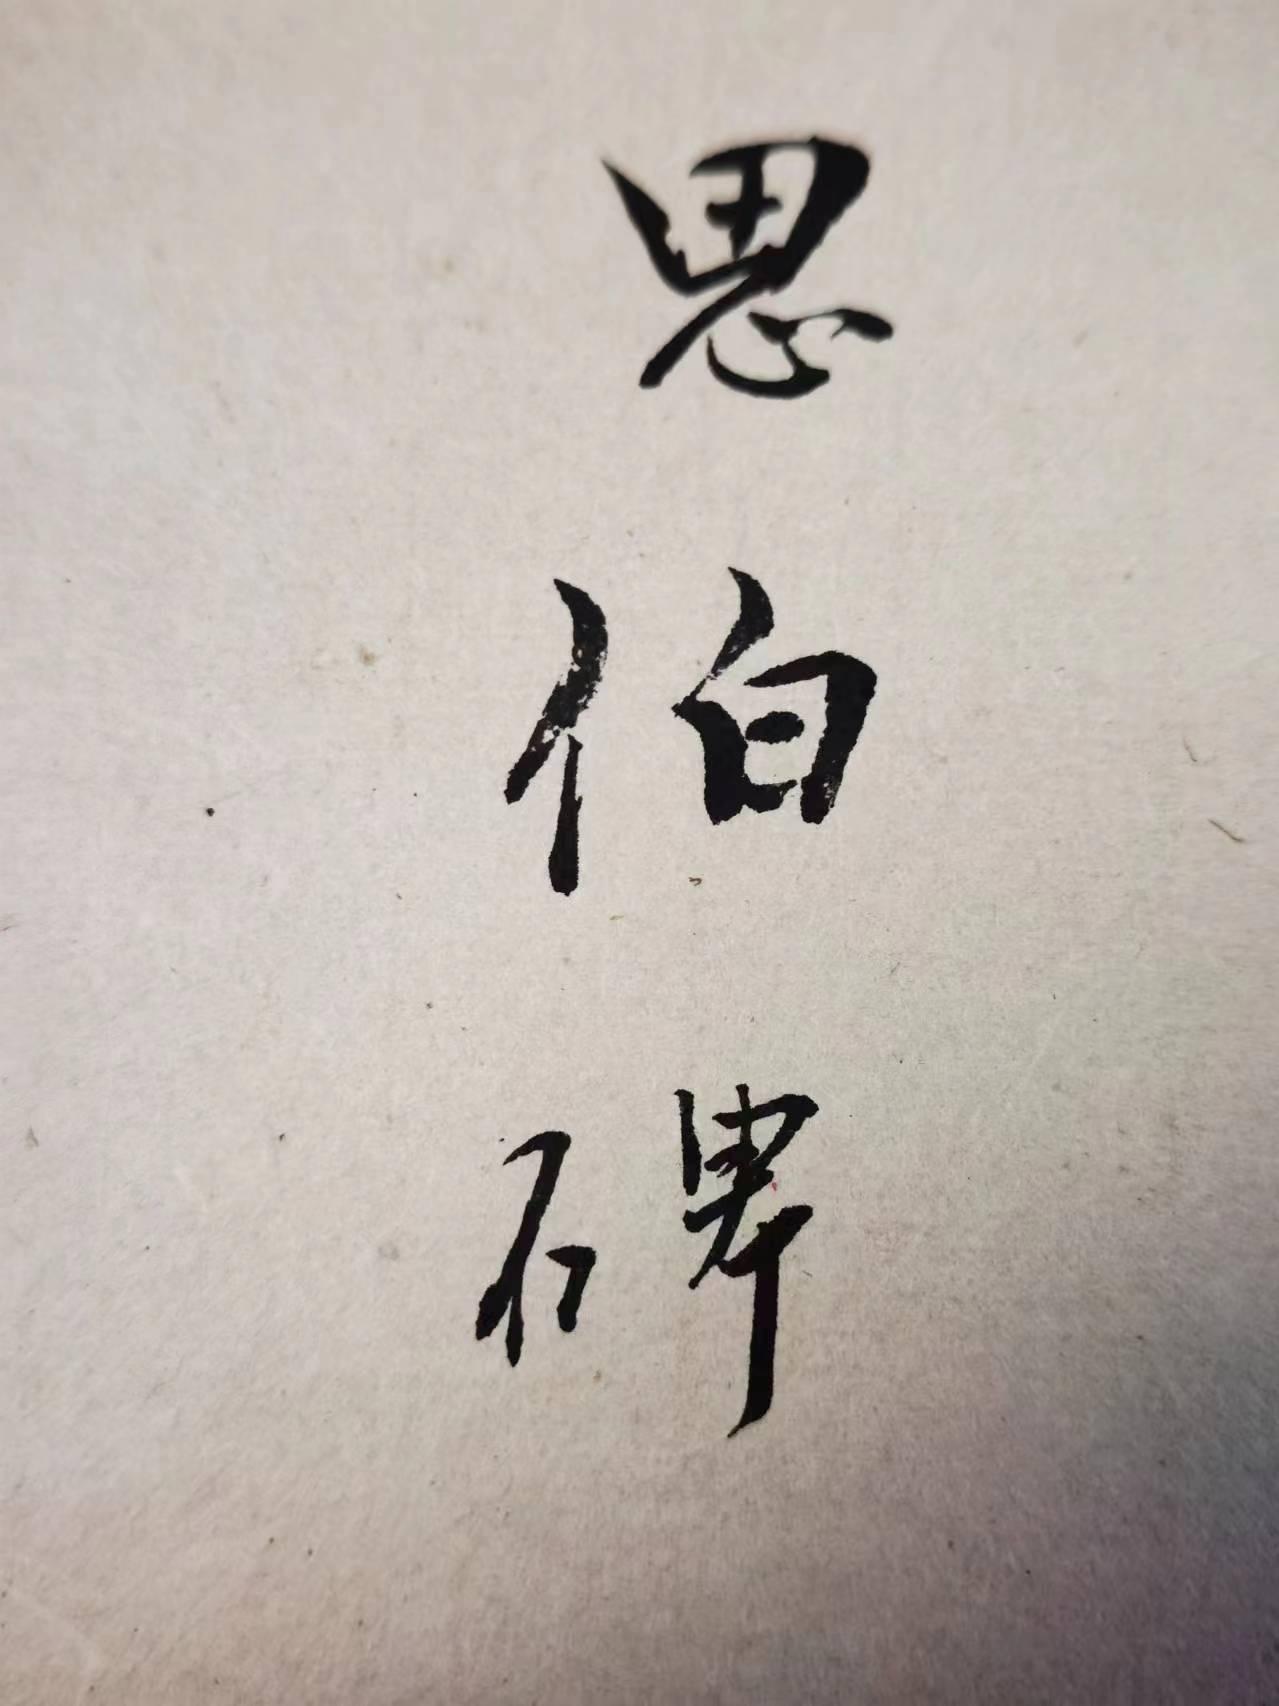 思伯碑